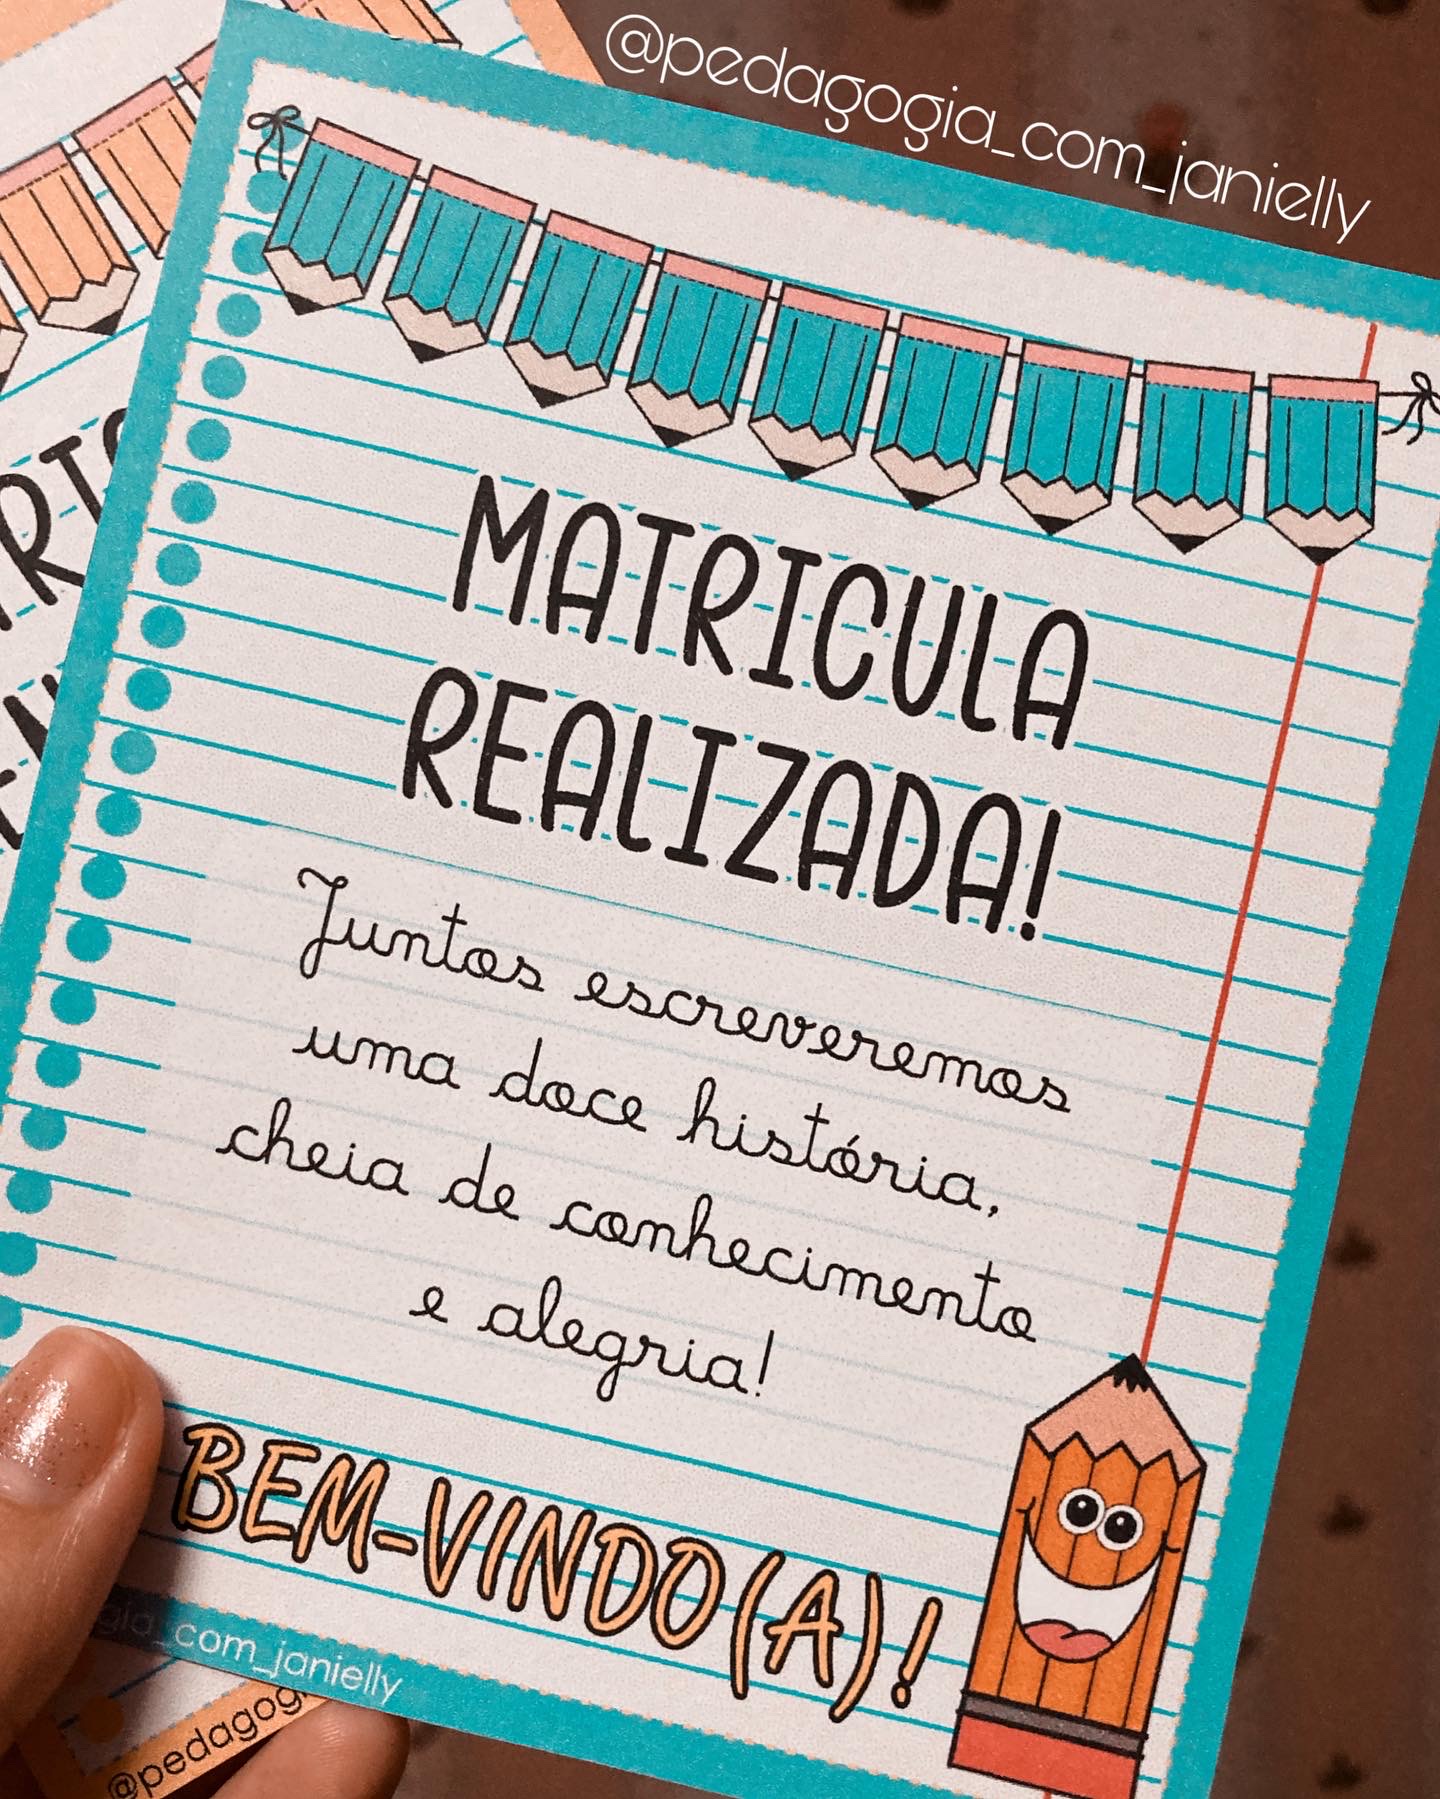 @pedagogia_com_janielly
MATRICULA
REALIZADA!
Juntos escreveremos
uma doce história,
cheia de conhecimento
e alegria!
BEM-VINDO(A)!
gia_com_janielly
@pedagog